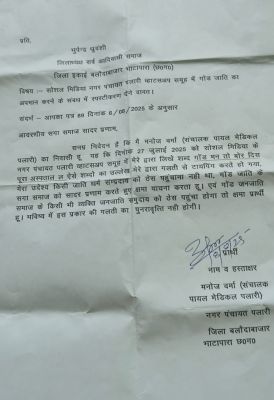 प्रति,
भुपेन्द्र धुवंशी
जिलाध्यक्ष सर्व आदिवासी समाज
जिला इकाई बलौदाबाजार भाटापारा (छ0ग0)
विषय :- सोशल मिडिया नगर पंचायत पलारी व्हाटसअप समूह में गोंड जाति का
अपमान करने के संबंध में स्पस्टीकरण देने वावत।
संदर्भ - आपका पत्र 80 दिनांक 6/08/2025 के अनुसार
आदरणीय सगा समाज सादर प्रणाम,
सनम्र निवेदन है कि में मनोज वर्मा (संचालक पायल मेडिकल
पलारी) का निवासी हू यह कि दिनांक 27 जुलाई 2025 को सोशल मिडिया के
नगर पंचायत पलारी व्हाटसअप समूह में मेरे द्वारा जिसे शब्द गोंड मन तो बोर दिस
पूरा अस्पताल ल ऐसे शब्दों का उल्लेख मेरे द्वारा गलती से टायपिंग करते हो गया,
मेरा उद्देश्य किसी जाति धर्म संम्प्रदाय को ठेस पहुंचाना नही था, गोंड जाति के
सगा समाज को सादर प्रणाम करते हुए क्षमा याचना करता हू। एवं गोंड जनजाति
समाज के किसी भी व्यक्ति जनजाति समुदाय को ठेस पहुंचा होगा तो क्षमा प्रार्थी
हू। भविष्य में इस प्रकार की गलती का पुनरावृत्ति नही होगी।
प्रार्थी
नाम व हस्ताक्षर
मनोज वर्मा (संचालक
पायल मेडिकल पलारी)
नगर पंचायत पलारी
जिला बलौदाबाजार
भाटापारा छ0ग0